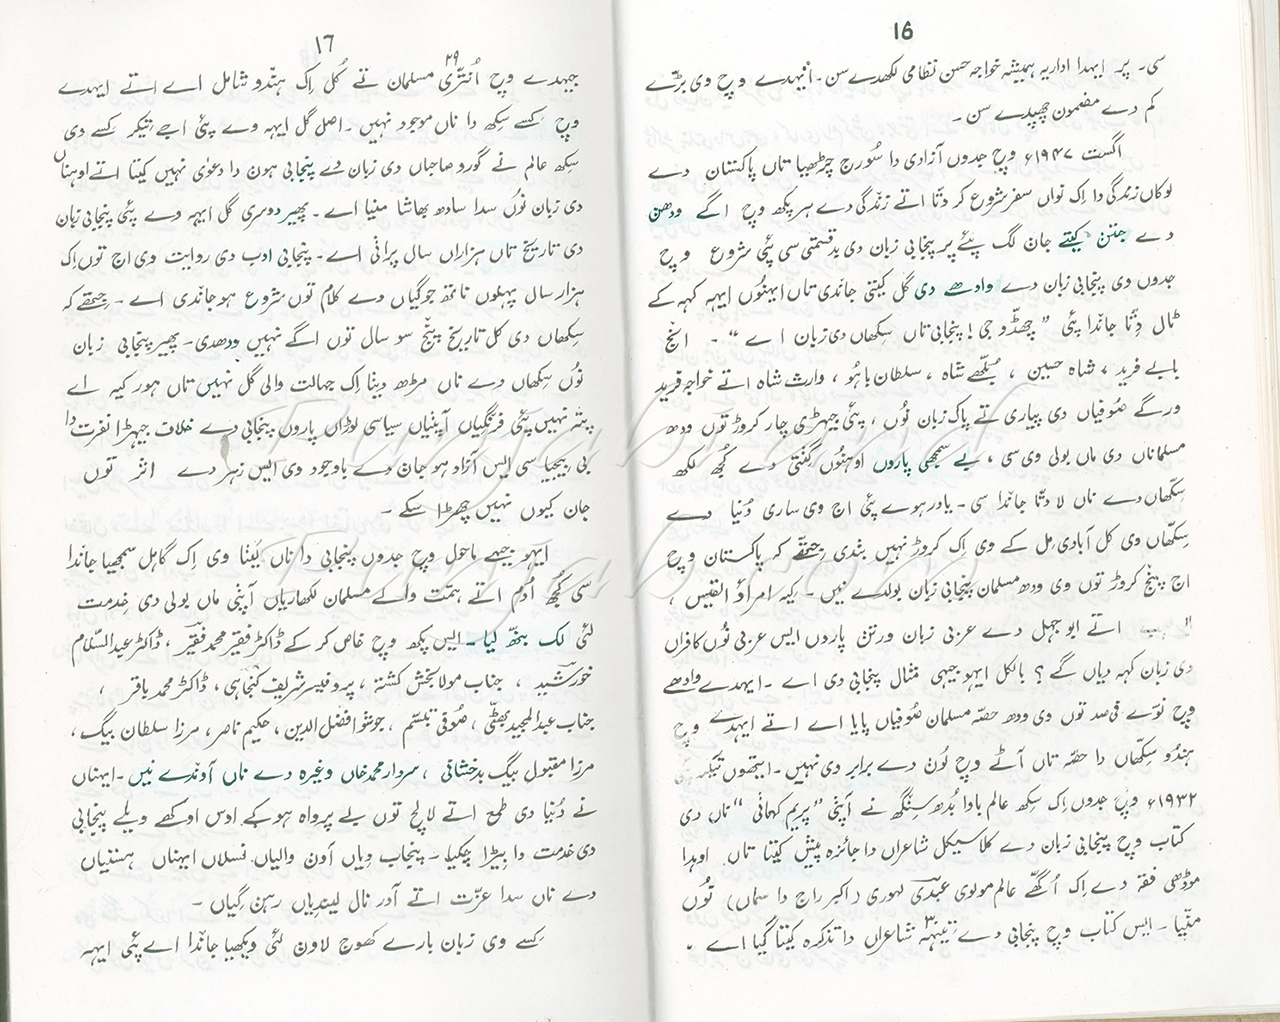 16
سی۔ پر ایہدا اداریہ ہمیشہ خواجہ حسن نظامی لکھدے سن۔ انیہدے وچ وی بڑے
کم دے مضمون چھپدے سن۔
اگست ۱۹۴۷ء وچ جدوں آزادی دا سُورج چڑھیا تاں پاکستان دے
لوکاں زندگی دا اِک نواں سفر شروع کر دتا اتے زندگی دے ہر پکھ وچ اگے ودھن
دے جتن کیتے جان لگ پئے پر پنجابی زبان دی بدقسمتی سی پئی شروع وچ
جدوں وی پنجابی زبان دے وادھے دی گل کیتی جاندی تاں ایہنُوں ایہہ کہہ کے
ٹال دِتا جاندا پئی ”چھڈو جی! پنجابی تاں سکھاں دی زبان اے“۔ انج
بابے فرید، شاہ حسین، بُلھے شاہ، سلطان باہُو، وارث شاہ اتے خواجہ فرید
ورگے صُوفیاں دی پیاری تے پاک زبان نُوں، پئی جیہڑی چار کروڑ توں ودھ
مسلماناں دی ماں بولی وی سی، بے سمجھی پاروں اوہنُوں گِنتی دے کُجھ لکھ
سکھاں دے ناں لا دتا جاندا سی۔ یاد رہوے پئی اج وی ساری دُنیا دے
سِکھاں وی کل آبادی مل کے وی اِک کروڑ نہیں بندی جتھے کہ پاکستان وچ
اج پینج کروڑ توں وی ودھ مسلمان پنجابی زبان بولدے نیں۔ کیہ امراؤ القیس،
اتے ابو جہل دے عربی زبان ورتن پاروں ایس عربی نُوں کافراں
دی زبان کہہ دیاں گے؟ بالکل ایہو جیہی مثال پنجابی دی اے۔ ایہدے وادھے
وچ نوّے فی صد توں وی ودھ حصّہ مسلمان صُوفیاں پایا اے اتے ایہدے وچ
ہندُو سِکھاں دا حصّہ تاں آٹے وچ لُون دے برابر دی نہیں۔ ایتھوں تیکر کہ
۱۹۳۲ء وچ جدوں اِک سکھ عالم باوا بُدھ سنگھ نے اپنی ”پریم کہانی“ ناں دی
کتاب وچ پنجابی زبان دے کلاسیکل شاعراں دا جائزہ پیش کیتا تاں اوہدا
موڈھی فقہ دے اِک اُگھے عالم مولوی عبدی لہوری (اکبر راج دا سماں) نُوں
منّیا۔ ایس کتاب وچ پنجابی دے تیہہ ۳۰ شاعراں دا تذکرہ کیتا گیا اے،
۱۷
جیہدے وچ اُنتّری ۲۹ مسلمان تے کُل اِک ہندو شامل اے اتے ایہدے
وچ کِسے سِکھ دا ناں موجود نہیں۔ اصل گل ایہہ وے پئی اجے تیکر کِسے دی
سِکھ عالم نے گورو صاحباں دی زبان دے پنجابی ہون دا دعوٰی نہیں کیتا اتے اوہناں
دی زبان نُوں سدا سادھ بھاشا منیا اے۔ پھیر دوسری گل ایہہ وے پئی پنجابی زبان
دی تاریخ تاں ہزاراں سال پرانی اے۔ پنجابی ادب دی روایت وی اج توں اِک
ہزار سال پہلوں ناتھ جوگیاں دے کلام توں شروع ہو جاندی اے۔ جتھے کہ
سِکھاں دی کل تاریخ پنج سو سال توں اگے نہیں ودھدی۔ پھیر پنجابی زبان
نُوں سِکھاں دے ناں مڑھ دینا اِک جہالت والی گل نہیں تاں ہور کیہ اے
پتہ نہیں پئی فرنگیاں آپنیاں سیاسی لوڑاں پاروں پنجابی دے خلاف جیہڑا نفرت دا
بی بیجیا سی ایس آزاد ہو جان دے باوجود وی ایس زہر دے اثر توں
جان کیوں نہیں چھڑا سکے۔
ایہو جیہے ماحول وچ جدوں پنجابی دا ناں لینا وی اِک گاہل سمجھیا جاندا
سی کُجھ اُدم اتے ہمت والے مسلمان لکھاریاں آپنی ماں بولی دی خدمت
لئی لک بنھ لیا۔ ایس پکھ وچ خاص کر کے ڈاکٹر فقیر محمد فقیر، ڈاکٹر عبدالسّلام
خورشید، جناب مولا بخش کشتہ، پروفیسر شریف کنجاہی، ڈاکٹر محمد باقر،
جناب عبدالمجید بھٹی، صُوفی تبسّم، جوشوا فضل الدین، حکیم ناصر، مرزا سلطان بیگ،
مرزا مقبول بیگ بدخشانی، سردار محمد خاں وغیرہ دے ناں آوندے نیں۔ ایہناں
نے دُنیا دی طمع اتے لالچ توں بے پرواہ ہو کے اوس اوکھے ویلے پنجابی
دی خدمت دا بیڑا چکیا۔ پنجاب دیاں آون والیاں نسلاں ایہناں ہستیاں
دے ناں سدا عزّت اتے آدر نال لیندیاں رہن گیاں۔
کِسے وی زبان بارے کھوج لاون لئی ویکھیا جاندا اے پئی ایہہ